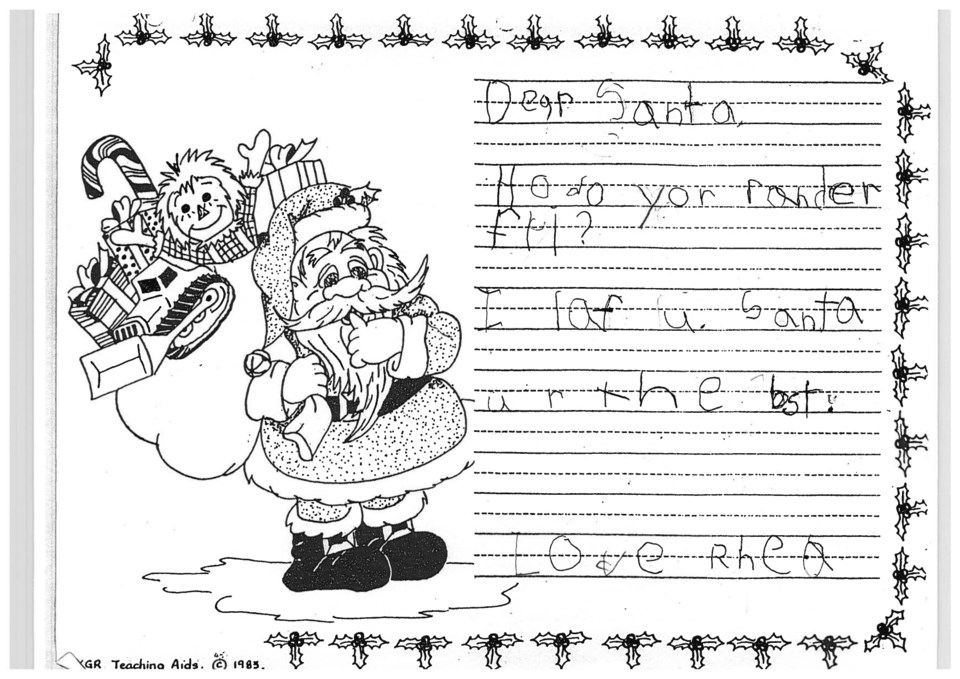 Dear Santa,
Ho do yor rander
I laf u. Santa
u r the bst.
Love Rhea
GR Teaching Aids. © 1985.